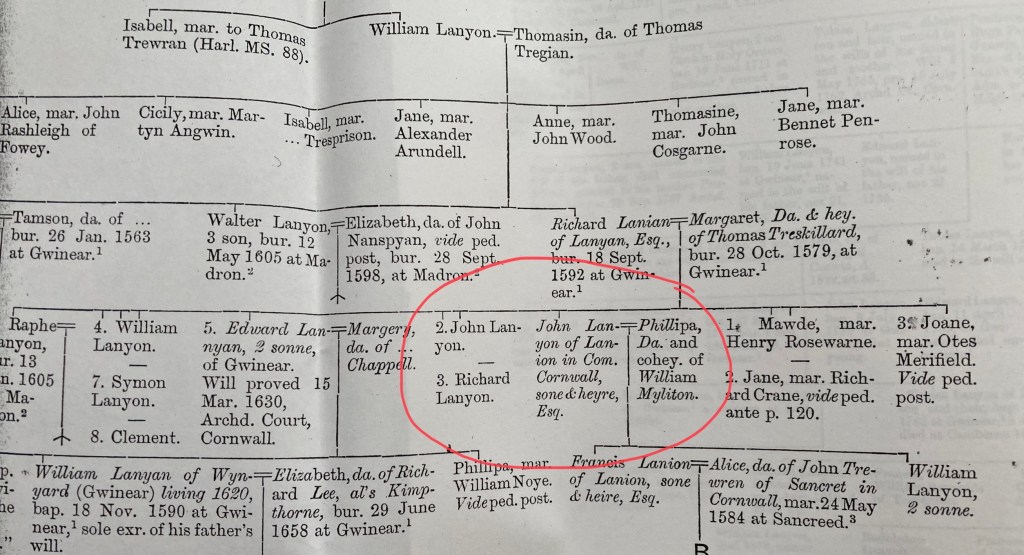 Isabell, mar. to Thomas
Trewran (Harl. MS. 88).
William Lanyon.
Thomasin, da. of Thomas
Tregian.
Alice, mar. John
Rashleigh of
Fowey.
Cicily, mar. Mar-
tyn Angwin.
Isabell, mar.
... Tresprison.
Jane, mar.
Alexander
Arundell.
Anne, mar.
John Wood.
Thomasine,
mar. John
Cosgarne.
Jane, mar.
Bennet Pen-
rose.
Tamson, da. of ...
bur. 26 Jan. 1563
at Gwinear.¹
Walter Lanyon,
3 son, bur. 12
May 1605 at Ma-
dron.²
Elizabeth, da. of John
Nanspyan, vide ped.
post, bur. 28 Sept.
1598, at Madron.²
Richard Lanian
of Lanyan, Esq.,
bur. 18 Sept.
1592 at Gwin-
ear.¹
Margaret, Da. & hey.
of Thomas Treskillard,
bur. 28 Oct. 1579, at
Gwinear.¹
Raphe
anyon,
ur. 13
n. 1605
Ma-
on.²
4. William
Lanyon.
—
7. Symon
Lanyon.
—
8. Clement.
5. Edward Lan-
nyan, 2 sonne,
of Gwinear.
Will proved 15
Mar. 1630,
Archd. Court,
Cornwall.
Margery,
da. of ...
Chappell.
2. John Lan-
yon.
—
3. Richard
Lanyon.
John Lan-
yon of Lan-
ion in Com.
Cornwall,
sone & heyre,
Esq.
Phillipa,
Da. and
cohey. of
William
Myliton.
1. Mawde, mar.
Henry Rosewarne.
—
2. Jane, mar. Rich-
ard Crane, vide ped.
ante p. 120.
3. Joane,
mar. Otes
Merifield.
Vide ped.
post.
p.
vi-
he
."
William Lanyan of Wyn-
yard (Gwinear) living 1620,
bap. 18 Nov. 1590 at Gwi-
near,¹ sole exr. of his father's
will.
Elizabeth, da. of Rich-
ard Lee, al's Kimp-
thorne, bur. 29 June
1658 at Gwinear.¹
Phillipa, mar.
William Noye.
Vide ped. post.
Francis Lanion
of Lanion, sone
& heire, Esq.
Alice, da. of John Tre-
wren of Sancret in
Cornwall, mar. 24 May
1584 at Sancreed.³
William
Lanyon,
2 sonne.
B